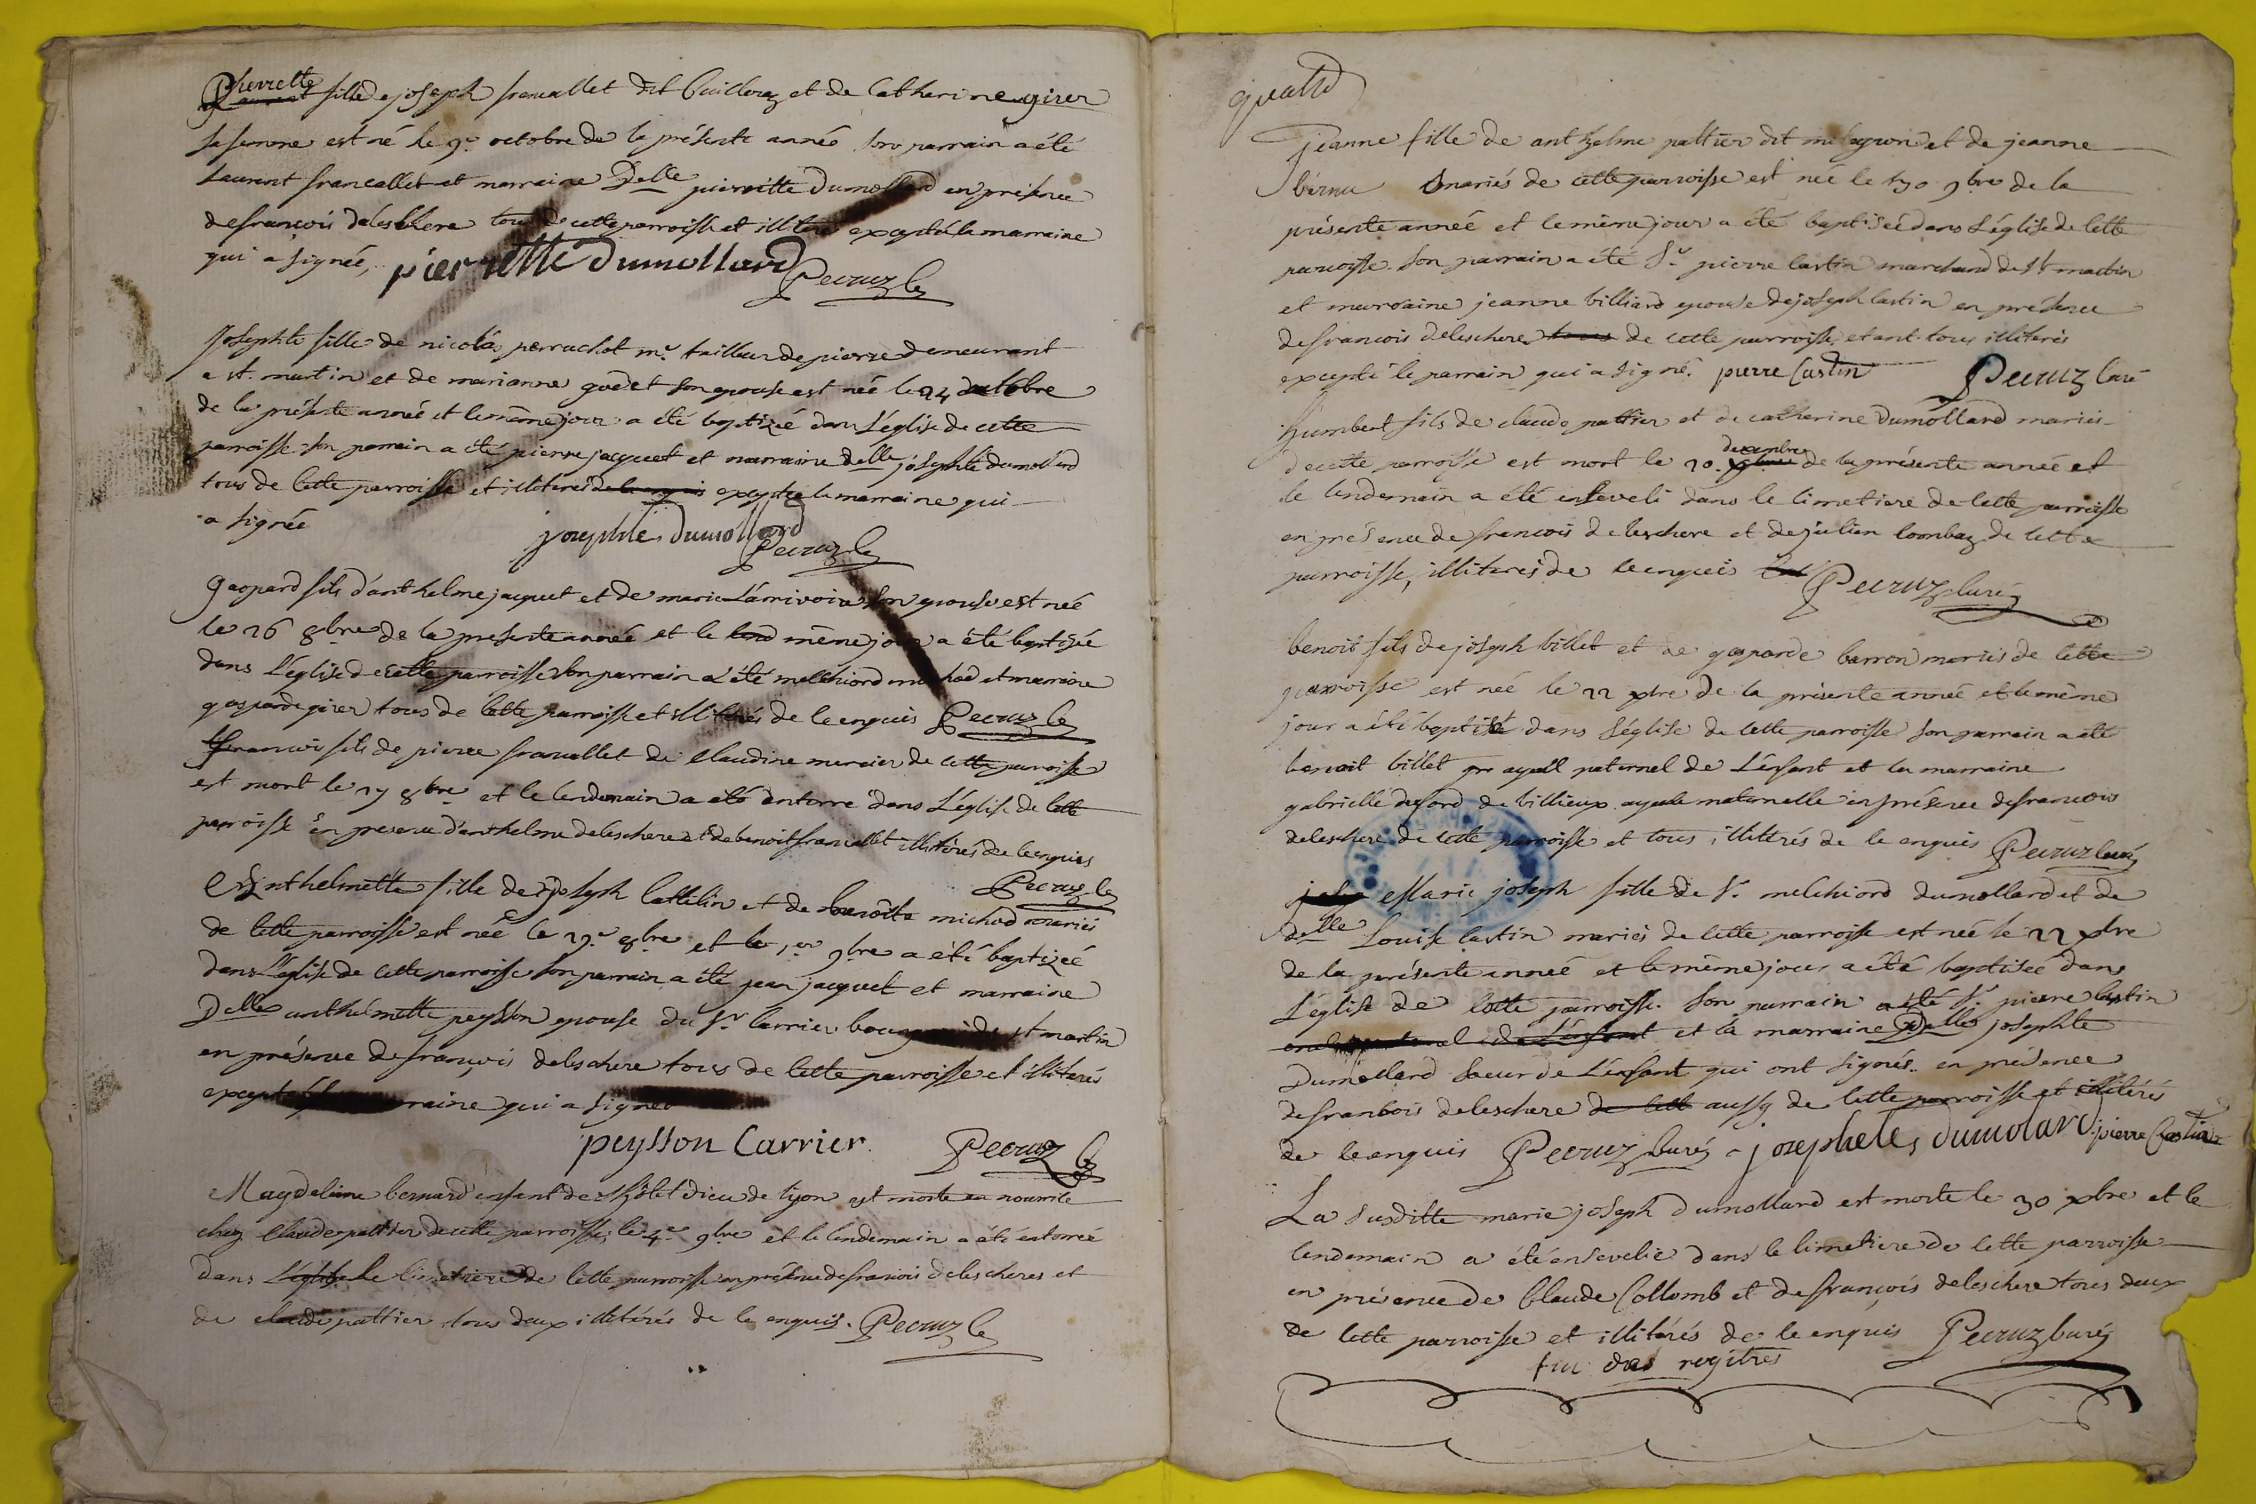 Pierrette fille de joseph francallet dit Cuillerez et de Catherine girer
sa femme est né le 9e octobre de la présente année son parrain a été
Laurent francallet et marraine Delle pierrette Dumollard en présence
de francois deleschere tous de cette parroisse et illiteres excepté la marraine
qui a signée, pierrette Dumollard Pecruz
Josephte fille de nicolas perruchot me tailleur de pierre demeurant
a st. martin et de marianne godet son epouse est née le 24 octobre
de la présente année et le même jour a été baptizée dans L'église de cette
parroisse son parrain a été pierre jacquet et marraine delle josephte dumollard
tous de cette parroisse et illiteres exceptée la marraine qui
a signée josephte Dumollard Pecruz
gaspard fils d'anthelme jacquet et de marie Larrivoire son epouse est née
le 26 8bre de la presente année et le même jour a été baptizée
dans L'église de cette parroisse son parrain a été melchiord michod et marraine
gasparde girer tous de cette parroisse et illiterés de ce enquis Pecruz
francois fils de pierre francallet de Claudine mercier de cette parroisse
est mort le 27 8bre et le lendemain a été enterré dans L'église de cette
parroisse en presence d'anthelme deleschere et de benoit francallet illiterés de ce enquis
Pecruz
Anthelmette fille de joseph Cattelin et de benoite michod mariés
de cette parroisse est née le 29e 8bre et le 1er 9bre a été baptizeé
dans L'église de cette parroisse son parrain a été jean jacquet et marraine
Delle anthelmette peysson epouse du Sr Carrier bourgeois de st martin
en présence de françois deleschere tous de cette parroisse et illiterés
excepté la marraine qui a signeé
peysson Carrier. Pecruz
Magdeleine bernard enfant de L'hôtel Dieu de Lyon est morte en nourrice
chez Claude pattier de cette parroisse, le 4e 9bre et le lendemain a été enterreé
dans L'église le Cimetiere de cette parroisse en présence de francois delescheres et
de claude pattier tous deux illitérés de ce enquis. Pecruz
quatre
jeanne fille de anthelme pattier dit et de jeanne
mariés de cette parroisse est née le 9bre de la
présente année et le même jour a été baptisée dans L'église de cette
parroisse. Son parrain a été Sr. pierre Castin marchand de St martin
et marraine jeanne billiard epouse de joseph Castin en présence
de francois deleschere tous de cette parroisse, etant tous illiterés
excepté le parrain qui a signé. pierre Castin Pecruz Curé
humbert fils de claude pattier et de catherine Dumollard mariés
de cette parroisse est mort le 20. decembre de la présente année et
le lendemain a été enseveli dans le Cimetiere de cette parroisse
en présence de francois deleschere et de julien Combaz de cette
parroisse, illiterés de ce enquis Pecruz Curé
benoit fils de joseph billet et de gasparde barron mariés de cette
parroisse est née le 22 xbre de la présente année et le même
jour a été baptisé dans L'église de cette parroisse son parrain a été
benoit billet ayeull paternel de L'enfant et la marraine
gabrielle de billieux ayeule maternelle en présence de francois
deleschere de cette parroisse et tous illitérés de ce enquis Pecruz Curé
Marie joseph fille de Sr melchiord dumollard et de
delle Louise Castin mariés de cette parroisse est née le 22 xbre
de la présente année et le même jour a été baptisée dans
L'église de cette parroisse. Son parrain a été Sr. pierre Castin
et la marraine Delle josephte
Dumollard soeur de L'enfant qui ont signés. en présence
de francois deleschere de cett aussy de cette parroisse et illitérés
de ce enquis Pecruz Curé josephete Dumolard pierre Castin
La susditte marie joseph Dumollard est morte le 30 xbre et le
lendemain a été ensevelie dans le Cimetiere de cette parroisse
en présence de Claude Collomb et de françois deleschere tous deux
de cette parroisse et illitérés de ce enquis Pecruz Curé
fin des regitres